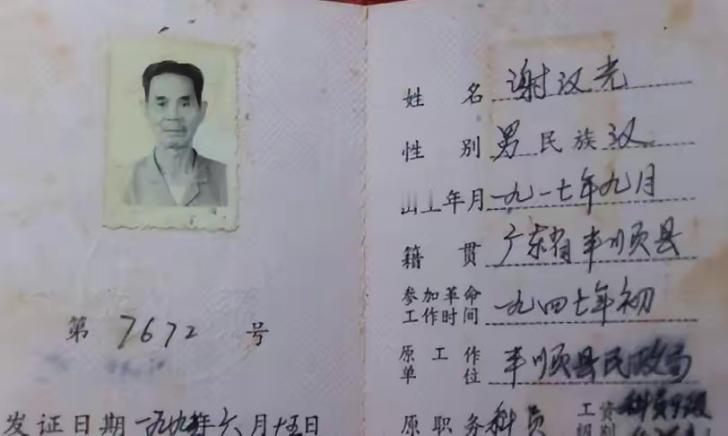 第 7672 号
发证日期 一九九 年六月十五日
姓名 谢汉光
性别 男 民族 汉
出生年月 一九一七年九月
籍贯 广东省丰顺县
参加革命工作时间 一九四七年初
原工作单位 丰顺县民政局
原职务 科员 工资级别 科员9级